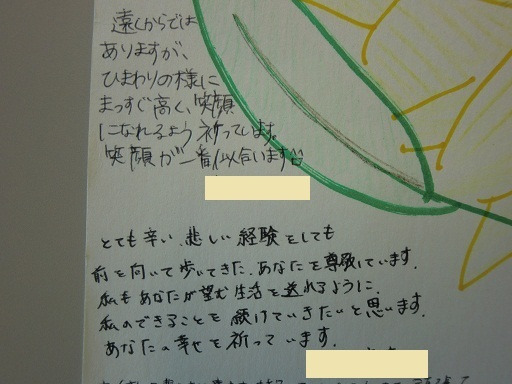 遠くからでは
ありますが、
ひまわりの様に
まっすぐ高く、笑顔
になれるよう祈っています。
笑顔が一番似合います
とても辛い、悲しい経験をしても
前を向いて歩いてきた、あなたを尊敬しています。
私もあなたが望む生活を送れるように、
私のできることを続けていきたいと思います。
あなたの幸せを祈っています。